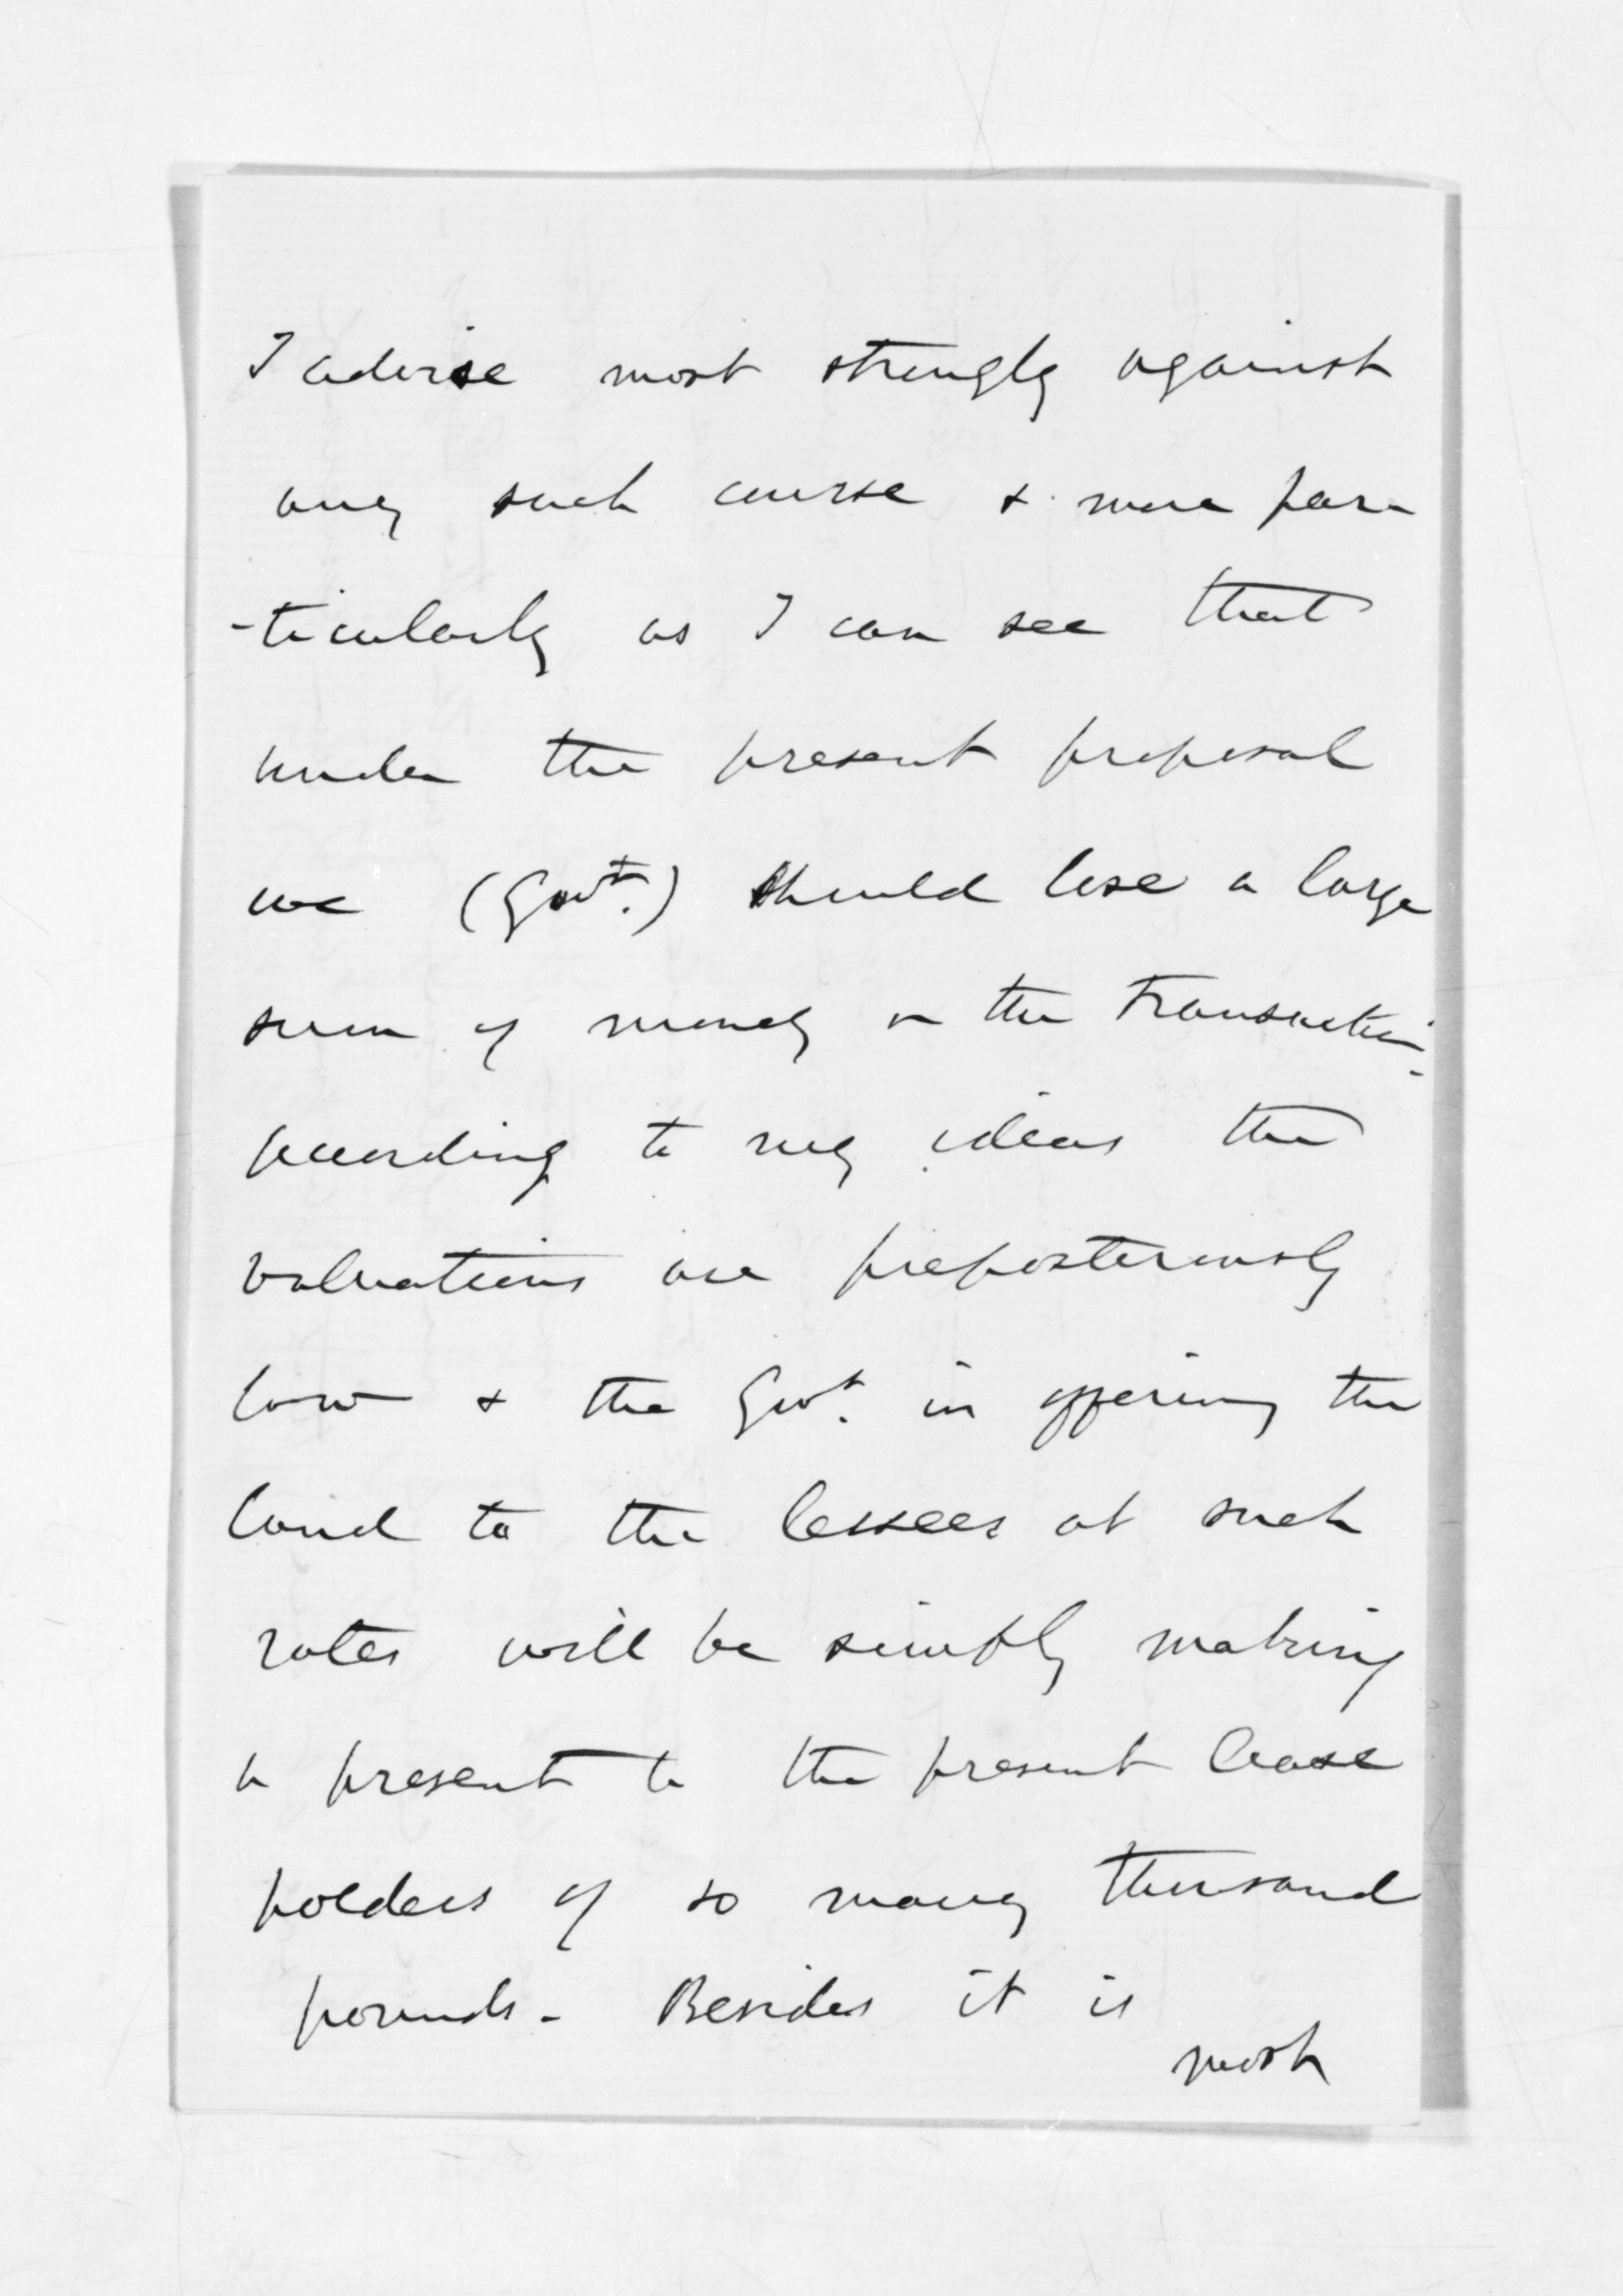 I advise most strongly against
any such course & more par
-ticularly as I can see that
under the present proposal
we (Govt.) should lose a large
sum of money on the transaction.
According to my ideas the
valuations are preposterously
low & the Govt. in offering the
land to the lessees at such
rates will be simply making
a present to the present lease
holders of so many thousand
pounds - Besides it is
most